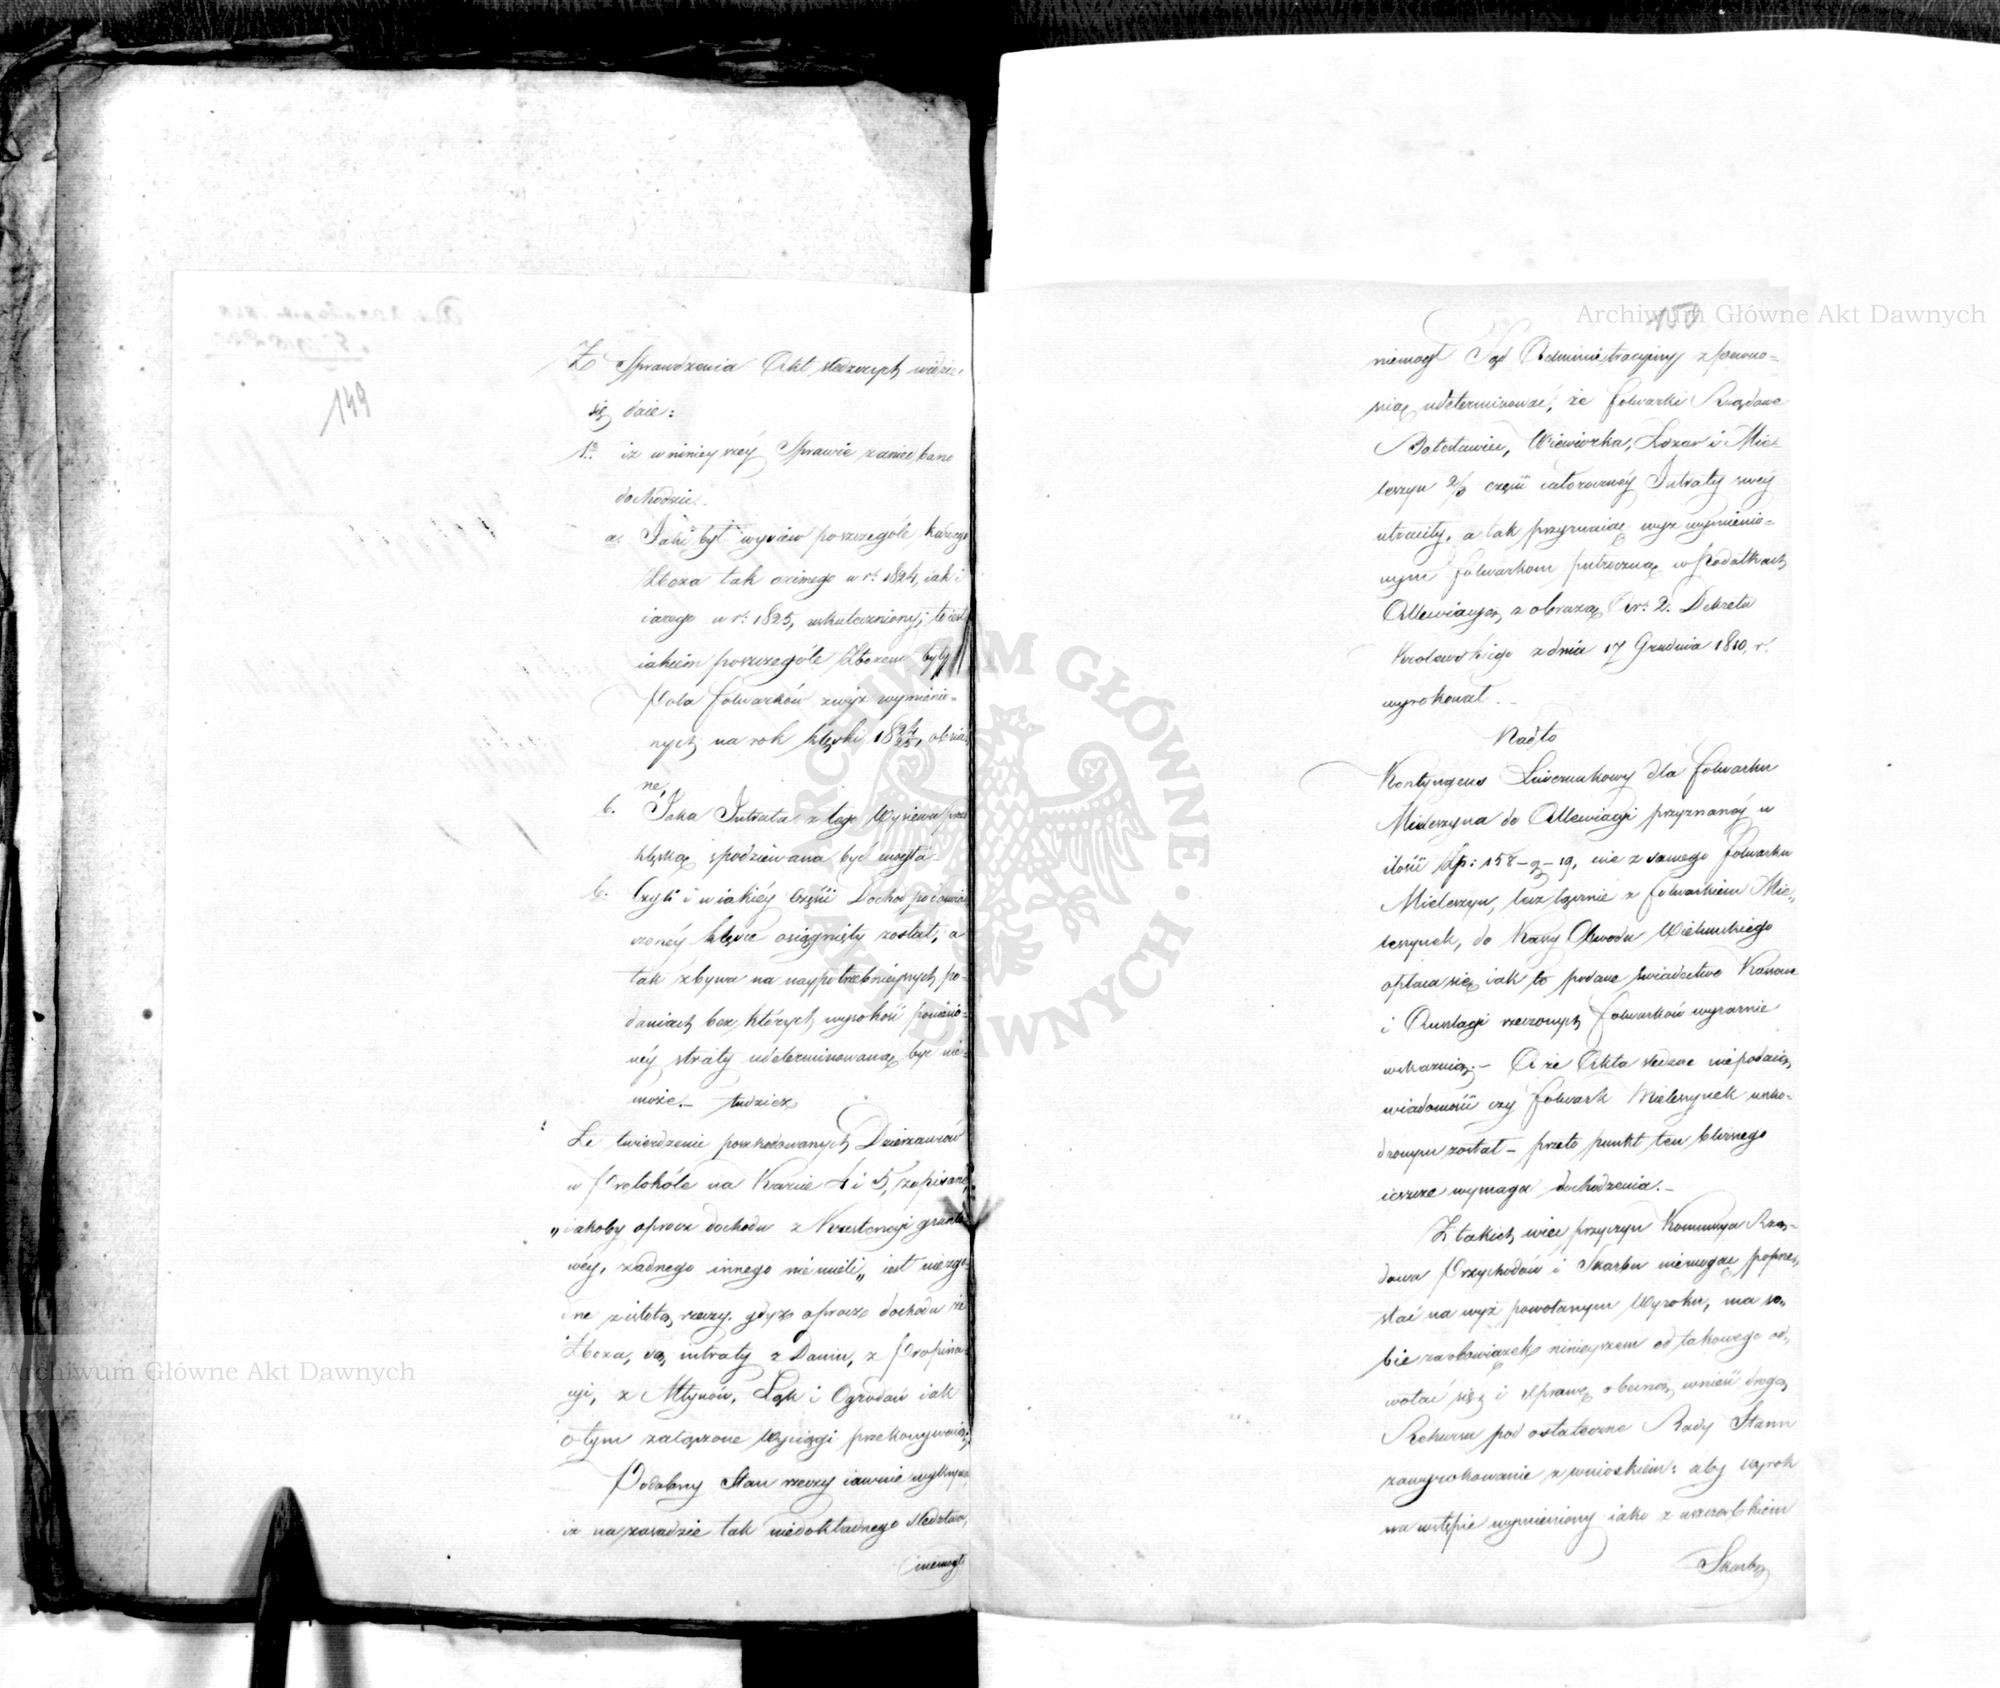 149
Z Sprawdzenia Akt śledczych widzieć
się daie:
1o iż w ninieyszéy Sprawie zaniechano
dochodzić.
a. Jaki był wysiew poszczególe każdego
Zboża tak ozimego w r. 1824, iak i
iarego w r. 1825, uskuteczniony, to iest
iakiém poszczególe Zbożem były
Pola folwarków zwyż wymienio-
nych na rok klęski 1824/25, obsia-
ne,
b. Jaka Intrata z tego Wysiewu przed
klęską spodziewana być mogła.
c. Czyli i w iakiéy Części Dochód po doświad
czonéy klęsce osiągnięty został, a
tak zbywa na naypotrzebnieyszych po-
daniach bez których wysokość poniesio-
néy straty udeterminowaną być nie-
może. – tudzież
Że twierdzenie poszkodowanych Dzierżawców
w Protokóle na Karcie 4 i 5, zapisane,
„iakoby oprócz dochodu z Krestencyi grunto-
wéy, żadnego innego nie mieli„ iest niezgo-
dne z istotą rzeczy, gdyż oprócz dochodu ze
Zboża, są intraty z Danin, z Propina-
cyi, z Młynów, Łąk i Ogrodów iak
o tym załączone Wyciągi przekonywaią,
Podobny Stan rzeczy iawnie wytyka,
iż na zasadzie tak niedokładnego śledztwa,
niemógł
150
niemógł Sąd Administracyiny z pewno-
ścią udeterminować, że folwarki Rządowe
Bolesławiec, Wiewiórka, Zdzar i Mie-
leszyn 2/3 części całoroczney Intraty swéy
utraciły, a tak przyznaiąc wyż wymienio-
nym folwarkom putrzczną w Podatkach
Allewiacyą, z obrazą Art. 2. Dekretu
Królewskiego z dnia 17 Grudnia 1810, r.
wyrokował. –
Nadto
Kontyngens Liwerunkowy dla folwarku
Mieleszyna do Allewiacyi przyznanéy w
ilości Złp: 158 – 9 – 19, nie z samego folwarku
Mieleszyn, lecz łącznie z folwarkiem Mie-
leszynek, do Kassy Obwodu Wieluńskiego
opłaca się, iak to podane świadectwo Kassowe
i Anszlagi rzeczonych folwarków wyraźnie
wskazuią. – A że Akta śledcze niepodaią
wiadomości czy folwark Mieleszynek uszko-
dzonym został – przeto punkt ten bliższego
ieszcze wymaga dochodzenia. –
Z takich więc przyczyn Kommissya Rzą-
dowa Przychodów i Skarbu niemogąc poprze-
stać na wyż powołanym Wyroku, ma so-
bie za obowiązek ninieyszem od takowego od-
wołać się, i sprawę obecną wnieść drogą
Rekursu pod ostateczne Rady Stanu
zawyrokowanie z wnioskiem: aby wyrok
na wstępie wymieniony iako z uszczerbkiem
Skarbu
Archiwum Główne Akt Dawnych
Archiwum Główne Akt Dawnych
ARCHIWUM GŁÓWNE AKT DAWNYCH